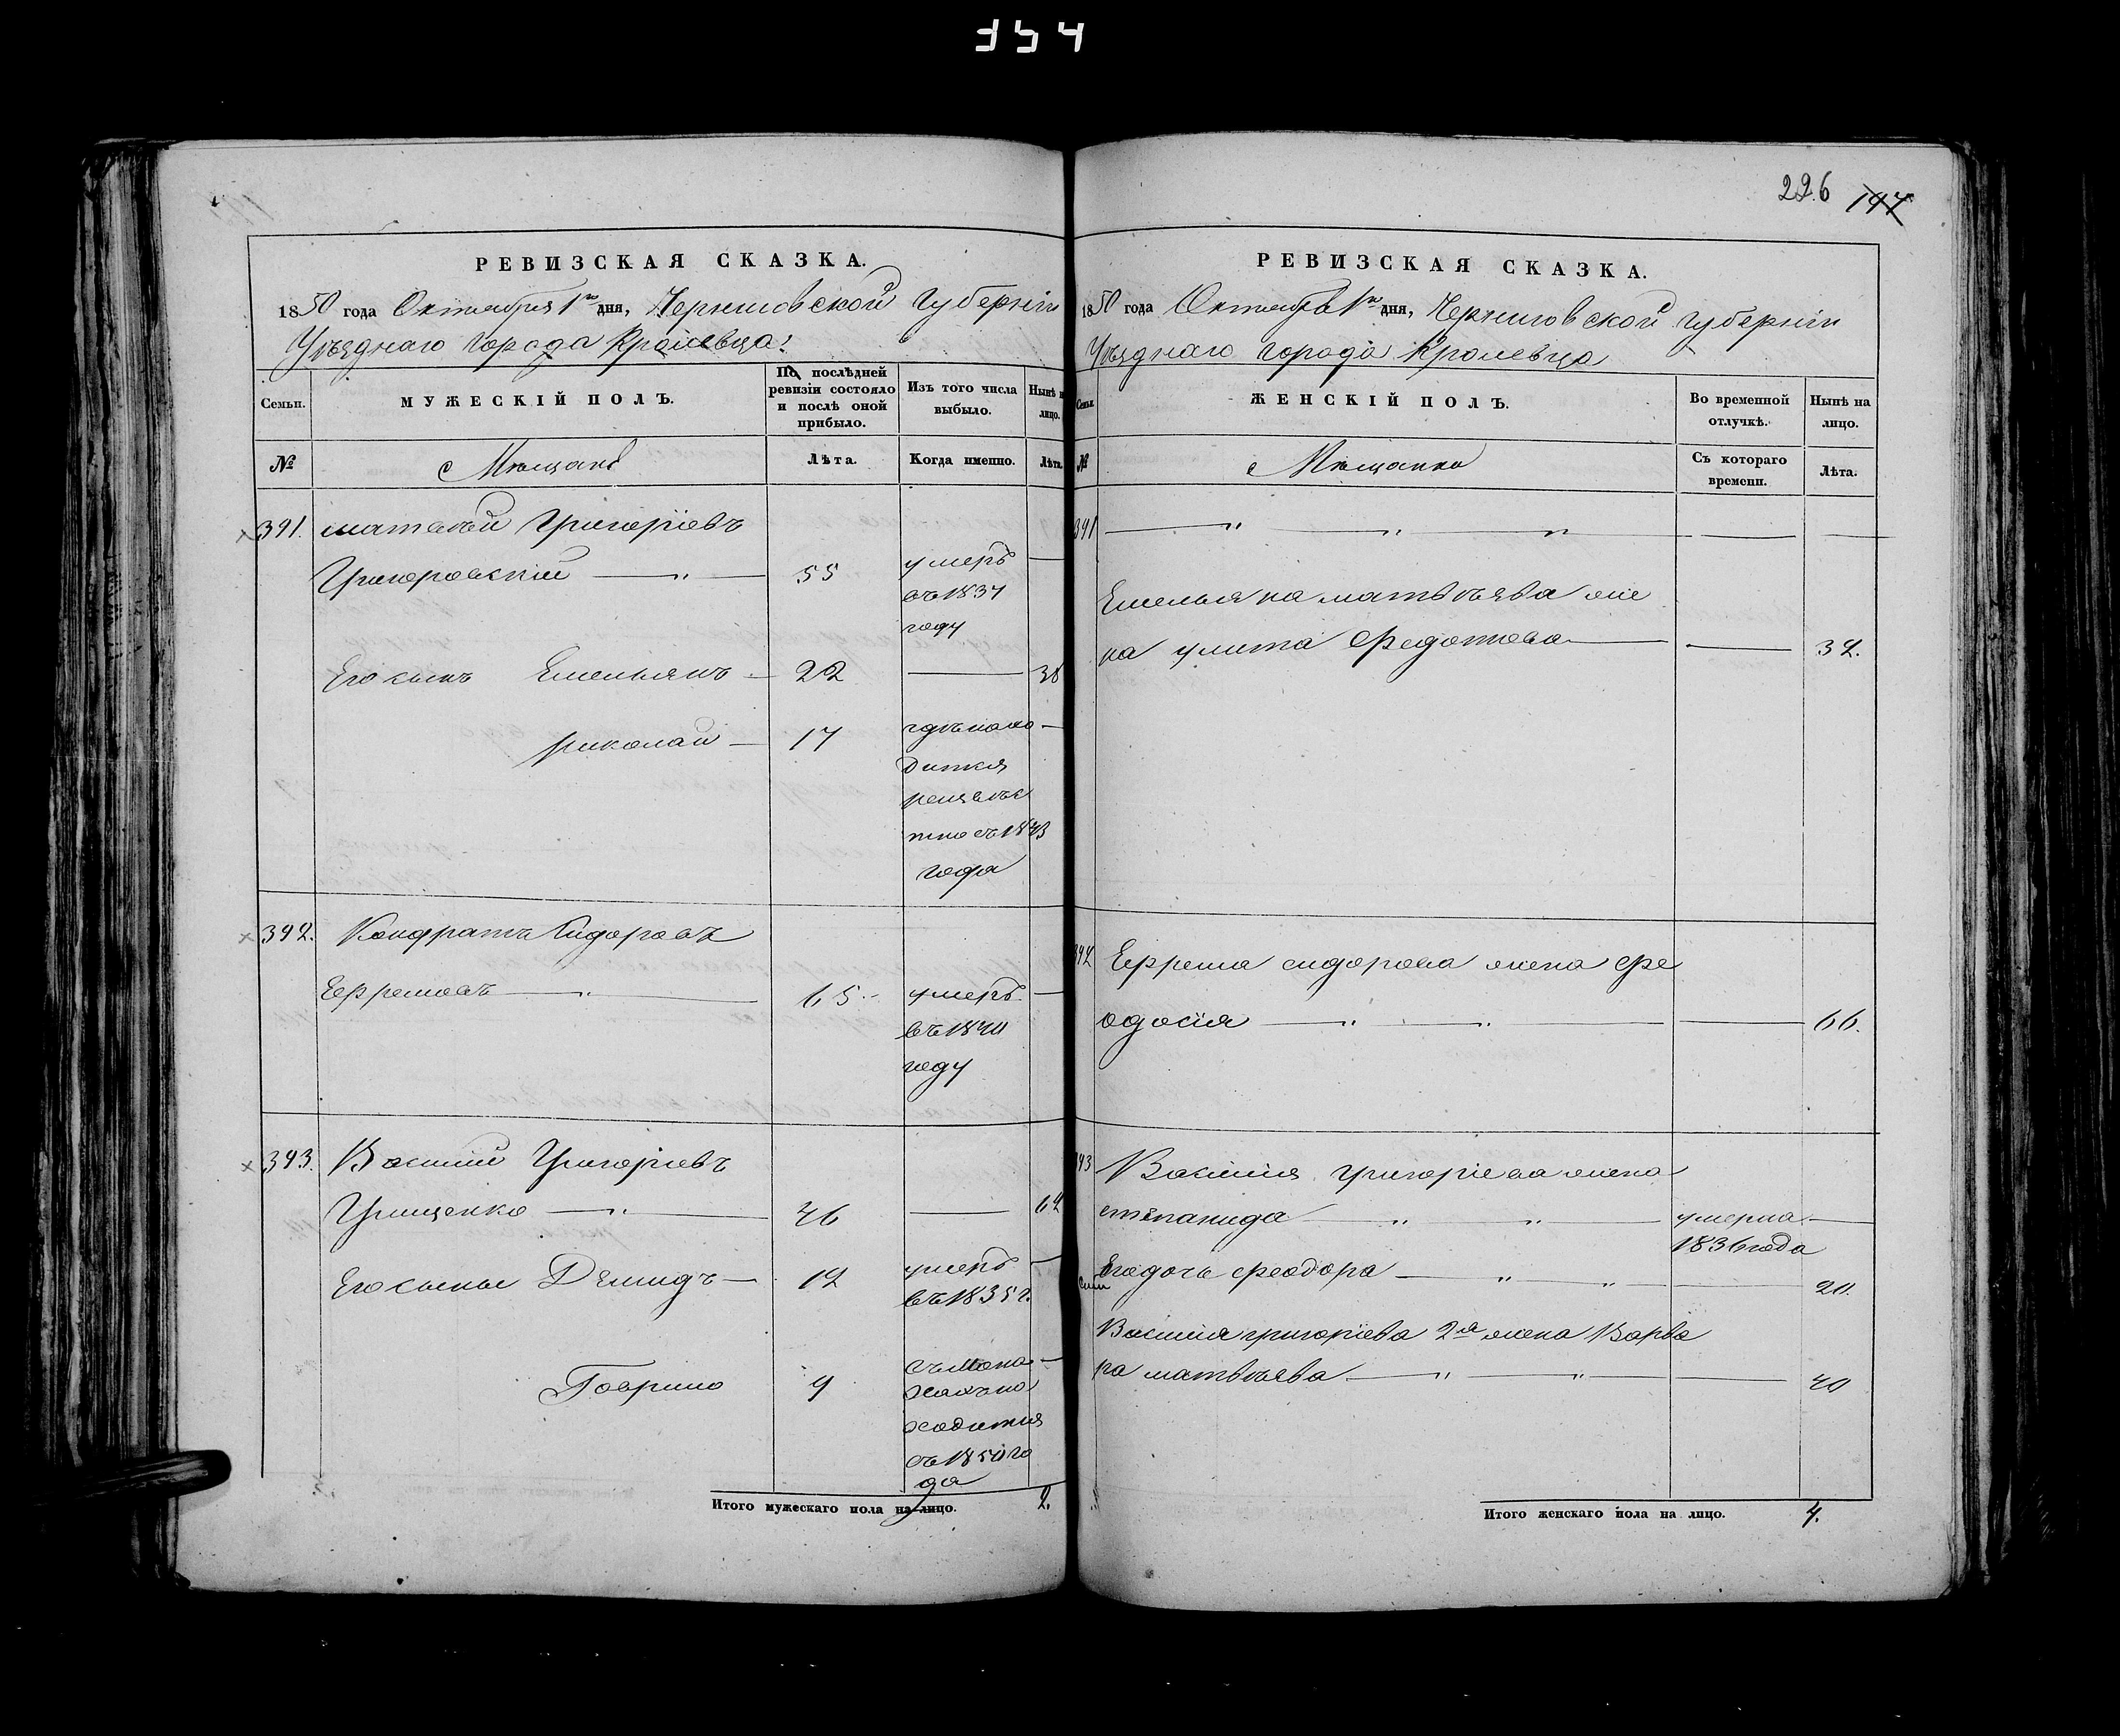 354
РЕВИЗСКАЯ СКАЗКА.
1850 года Октября 1го дня, Черниговской Губерніи
Уѣзднаго Города Кролевца:
Семьи.
МУЖЕСКІЙ ПОЛЪ.
По послѣдней ревизіи состояло и послѣ оной прибыло.
Изъ того числа выбыло.
Нынѣ на лицо.
№
Мѣщане
Лѣта.
Когда именно.
Лѣта.
391. Матвѣй Григоріевъ
Григоровскій — " — 55 умеръ —
въ 1837
году
Его сынъ Емельянъ — 22 — 38
Николай — 17 гдѣ нахо —
дится
неизвѣс
тно съ 1843
года
392. Кондратъ Сидоровъ
Ефремовъ — " — 65 умеръ —
въ 1840
году
393. Василій Григоріевъ
Грищенко — " — 46 — 62
Его сынъ Демидъ — 12 умеръ —
въ 1835 г.
Гаврило 9
съ 1850 го
да
Итого мужескаго пола на лицо. 2.
226 147
РЕВИЗСКАЯ СКАЗКА.
1850 года Октября 1го дня, Черниговской Губерніи
Уѣзднаго Города Кролевца
Семьи.
ЖЕНСКІЙ ПОЛЪ.
Во временной отлучкѣ.
Нынѣ на лицо.
№
Мѣщанки
Съ котораго времени.
Лѣта.
391 — " — " — " — — —
Емельяна Матвѣева же
на Улита Федотова — — 32.
392 Ефрема Сидорова жена Фе
одосія — " — " — — 66.
393 Василія Григоріева жена
Степанида — " — " — умерла —
1836 года
Его дочь Феодора — " — " — 20.
Василія Григоріева 2я жена Варва
ра Матвѣева — " — " — 40
Итого женскаго пола на лицо. 4.